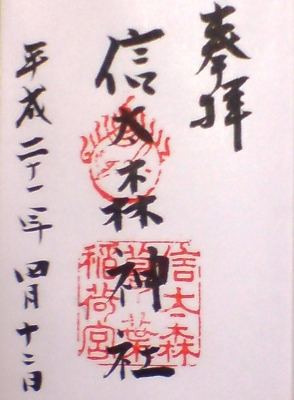 奉拝
信太森神社
信太森
葛葉
稲荷宮
平成二十二年四月十二日